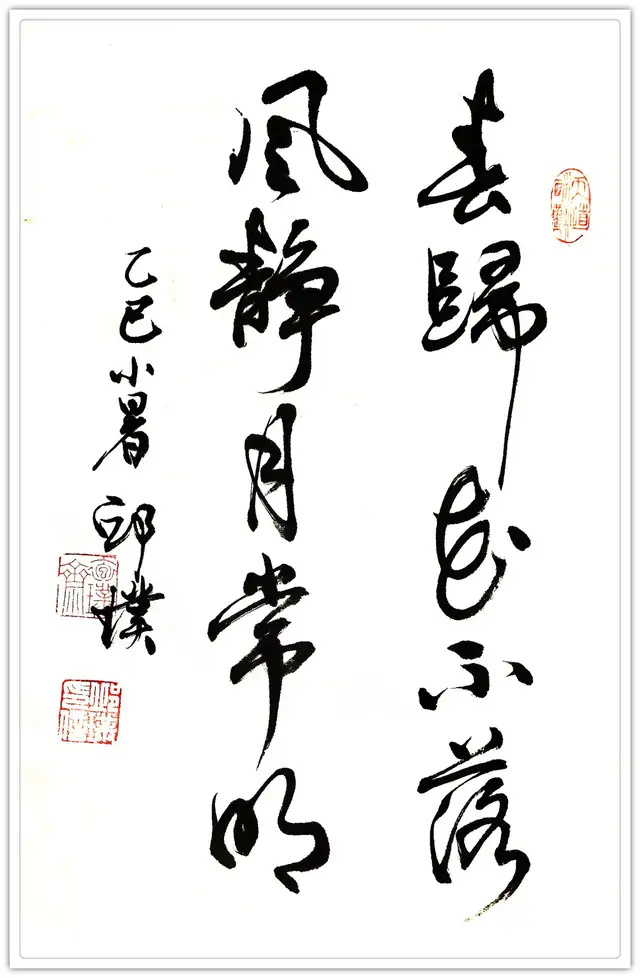 春歸花不落
風静月常明
乙巳小暑 邱璞